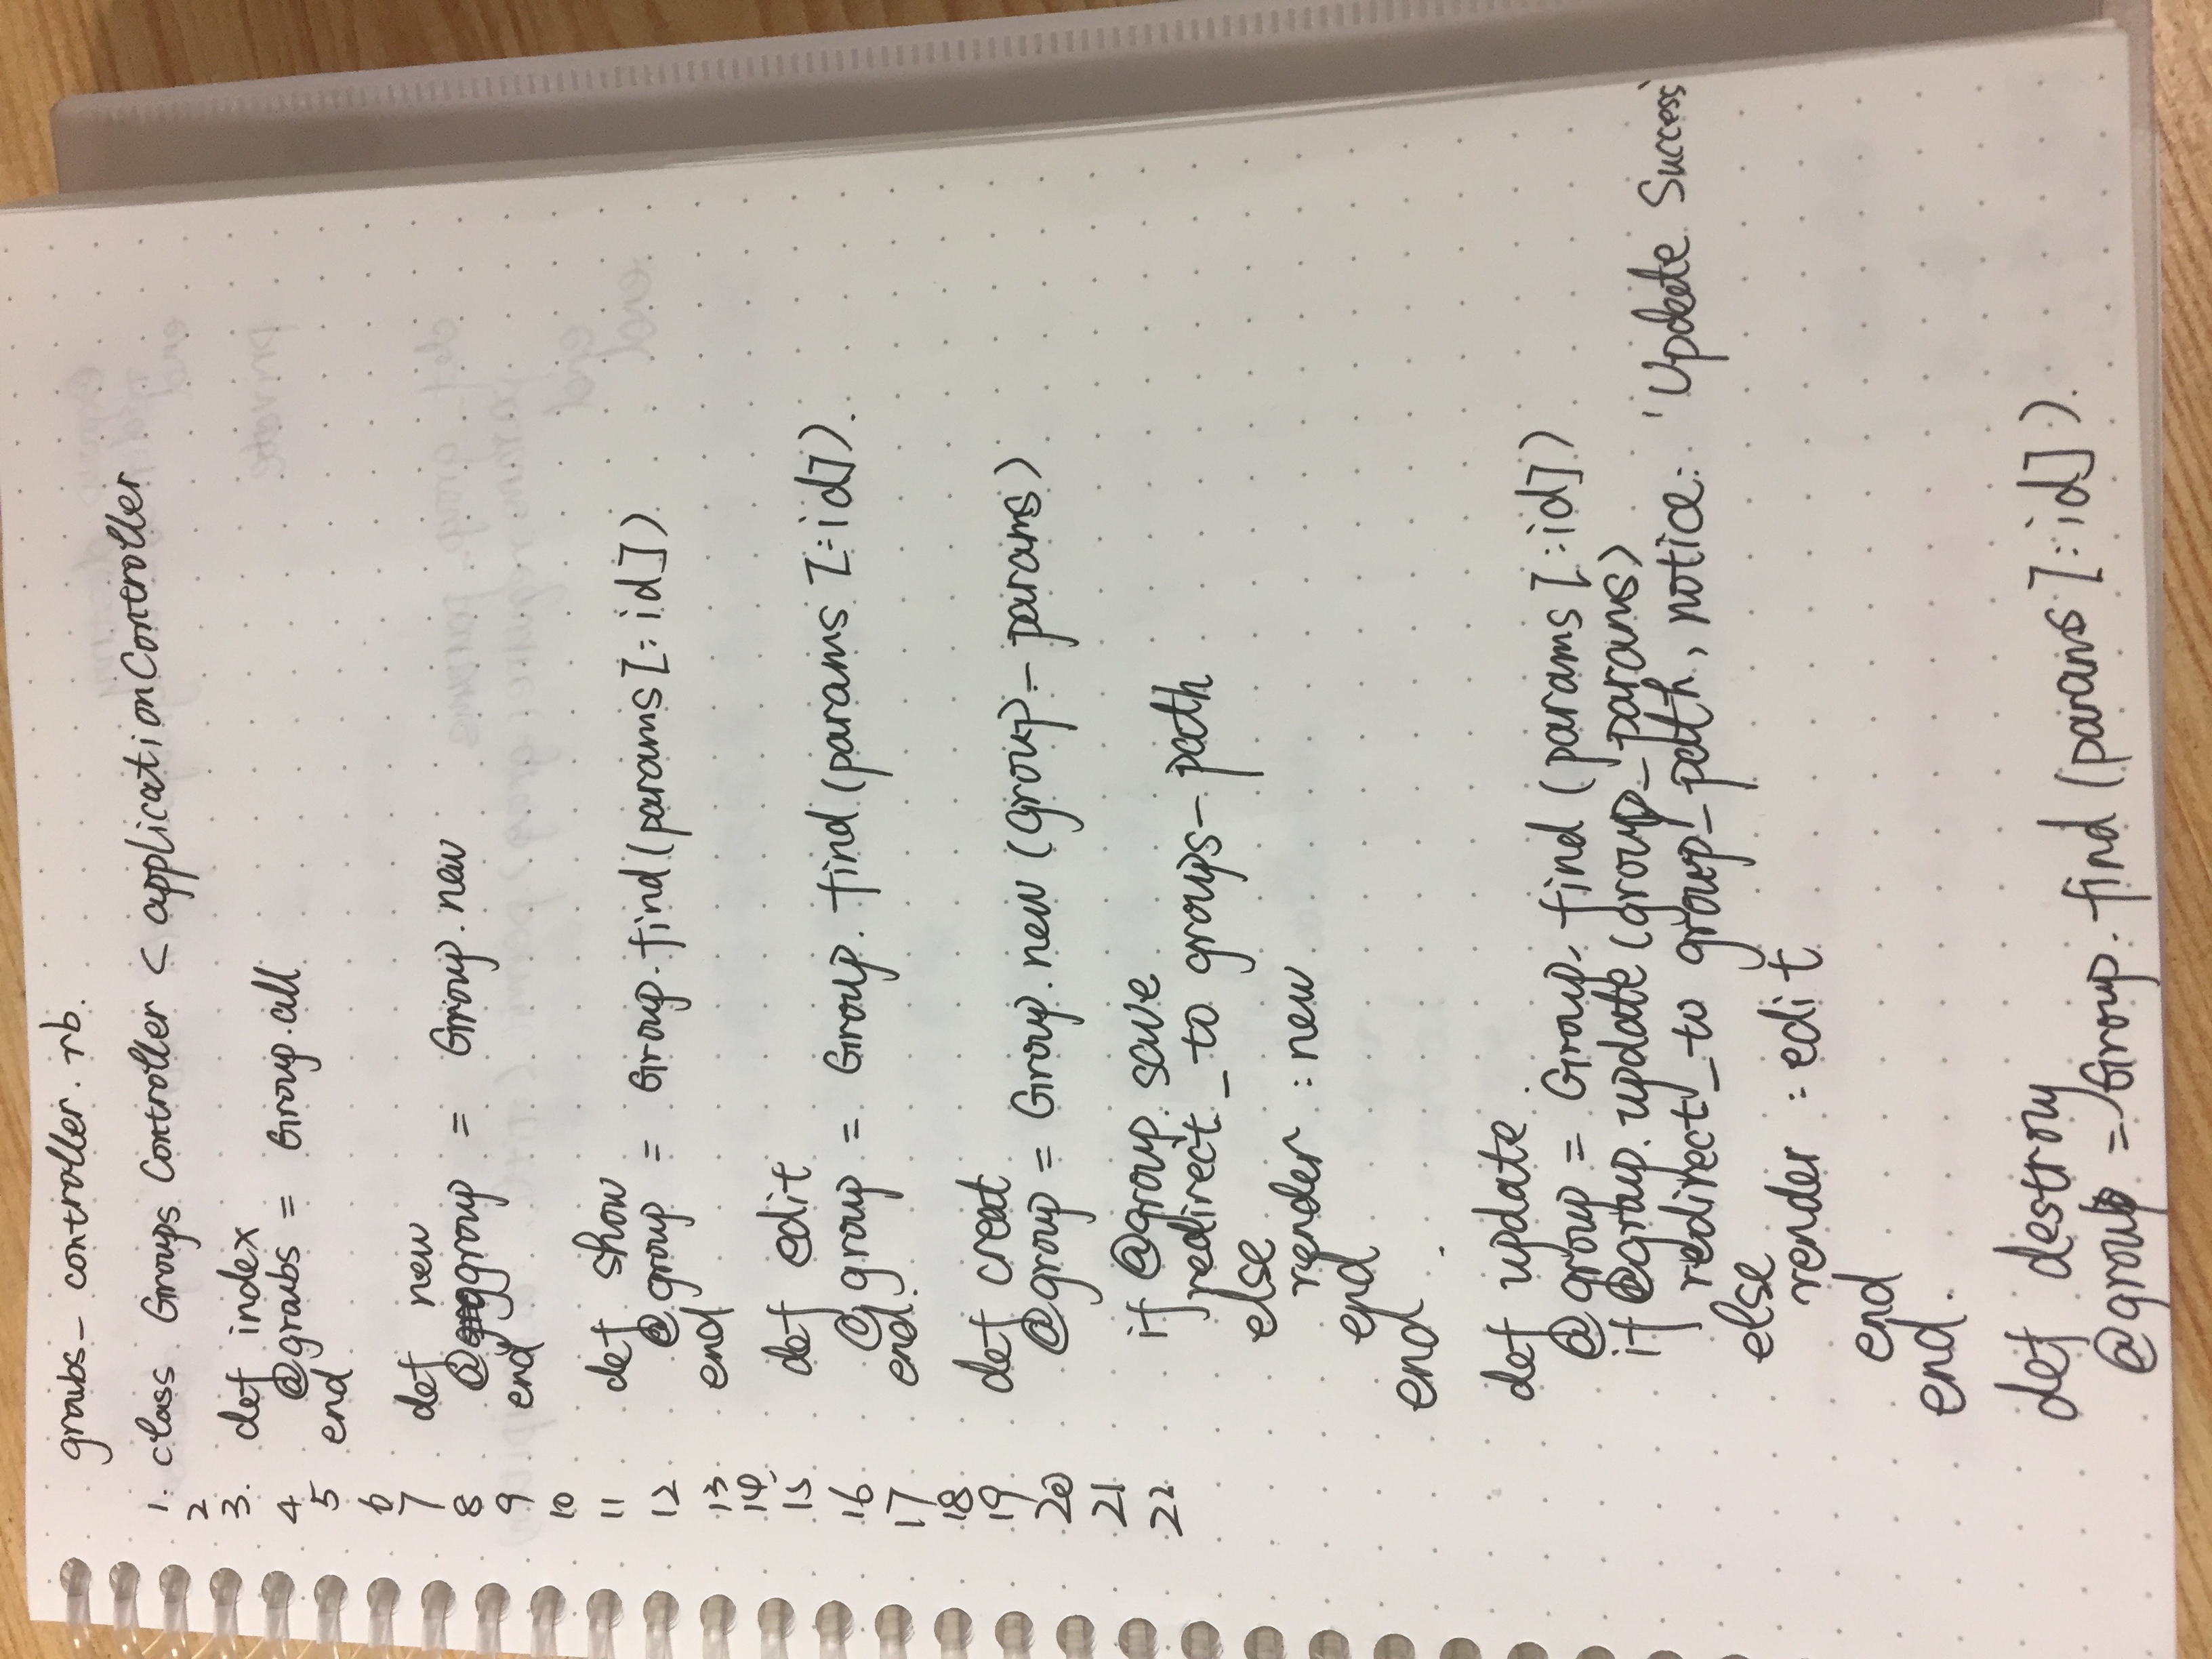 groubs_controller.rb.
1. class Groups Controller < applicationController
2
3. def index
4 @groubs = Group.all
5 end
6
7 def new
8 @group = Group.new
9 end
10
11 def show
12 @group = Group.find(params[:id])
13 end
14
15 def edit
16 @group = Group.find(params[:id]).
17 end.
18
19 def creat
20 @group = Group.new(group_params)
21
22 if @group.save
redirect_to groups_path
else
render :new
end
end
def update
@group = Group.find(params[:id])
if @group.update(group_params)
redirect_to group_path, notice: 'Update Success
else
render :edit
end
end.
def destroy
@group = Group.find(params[:id]).